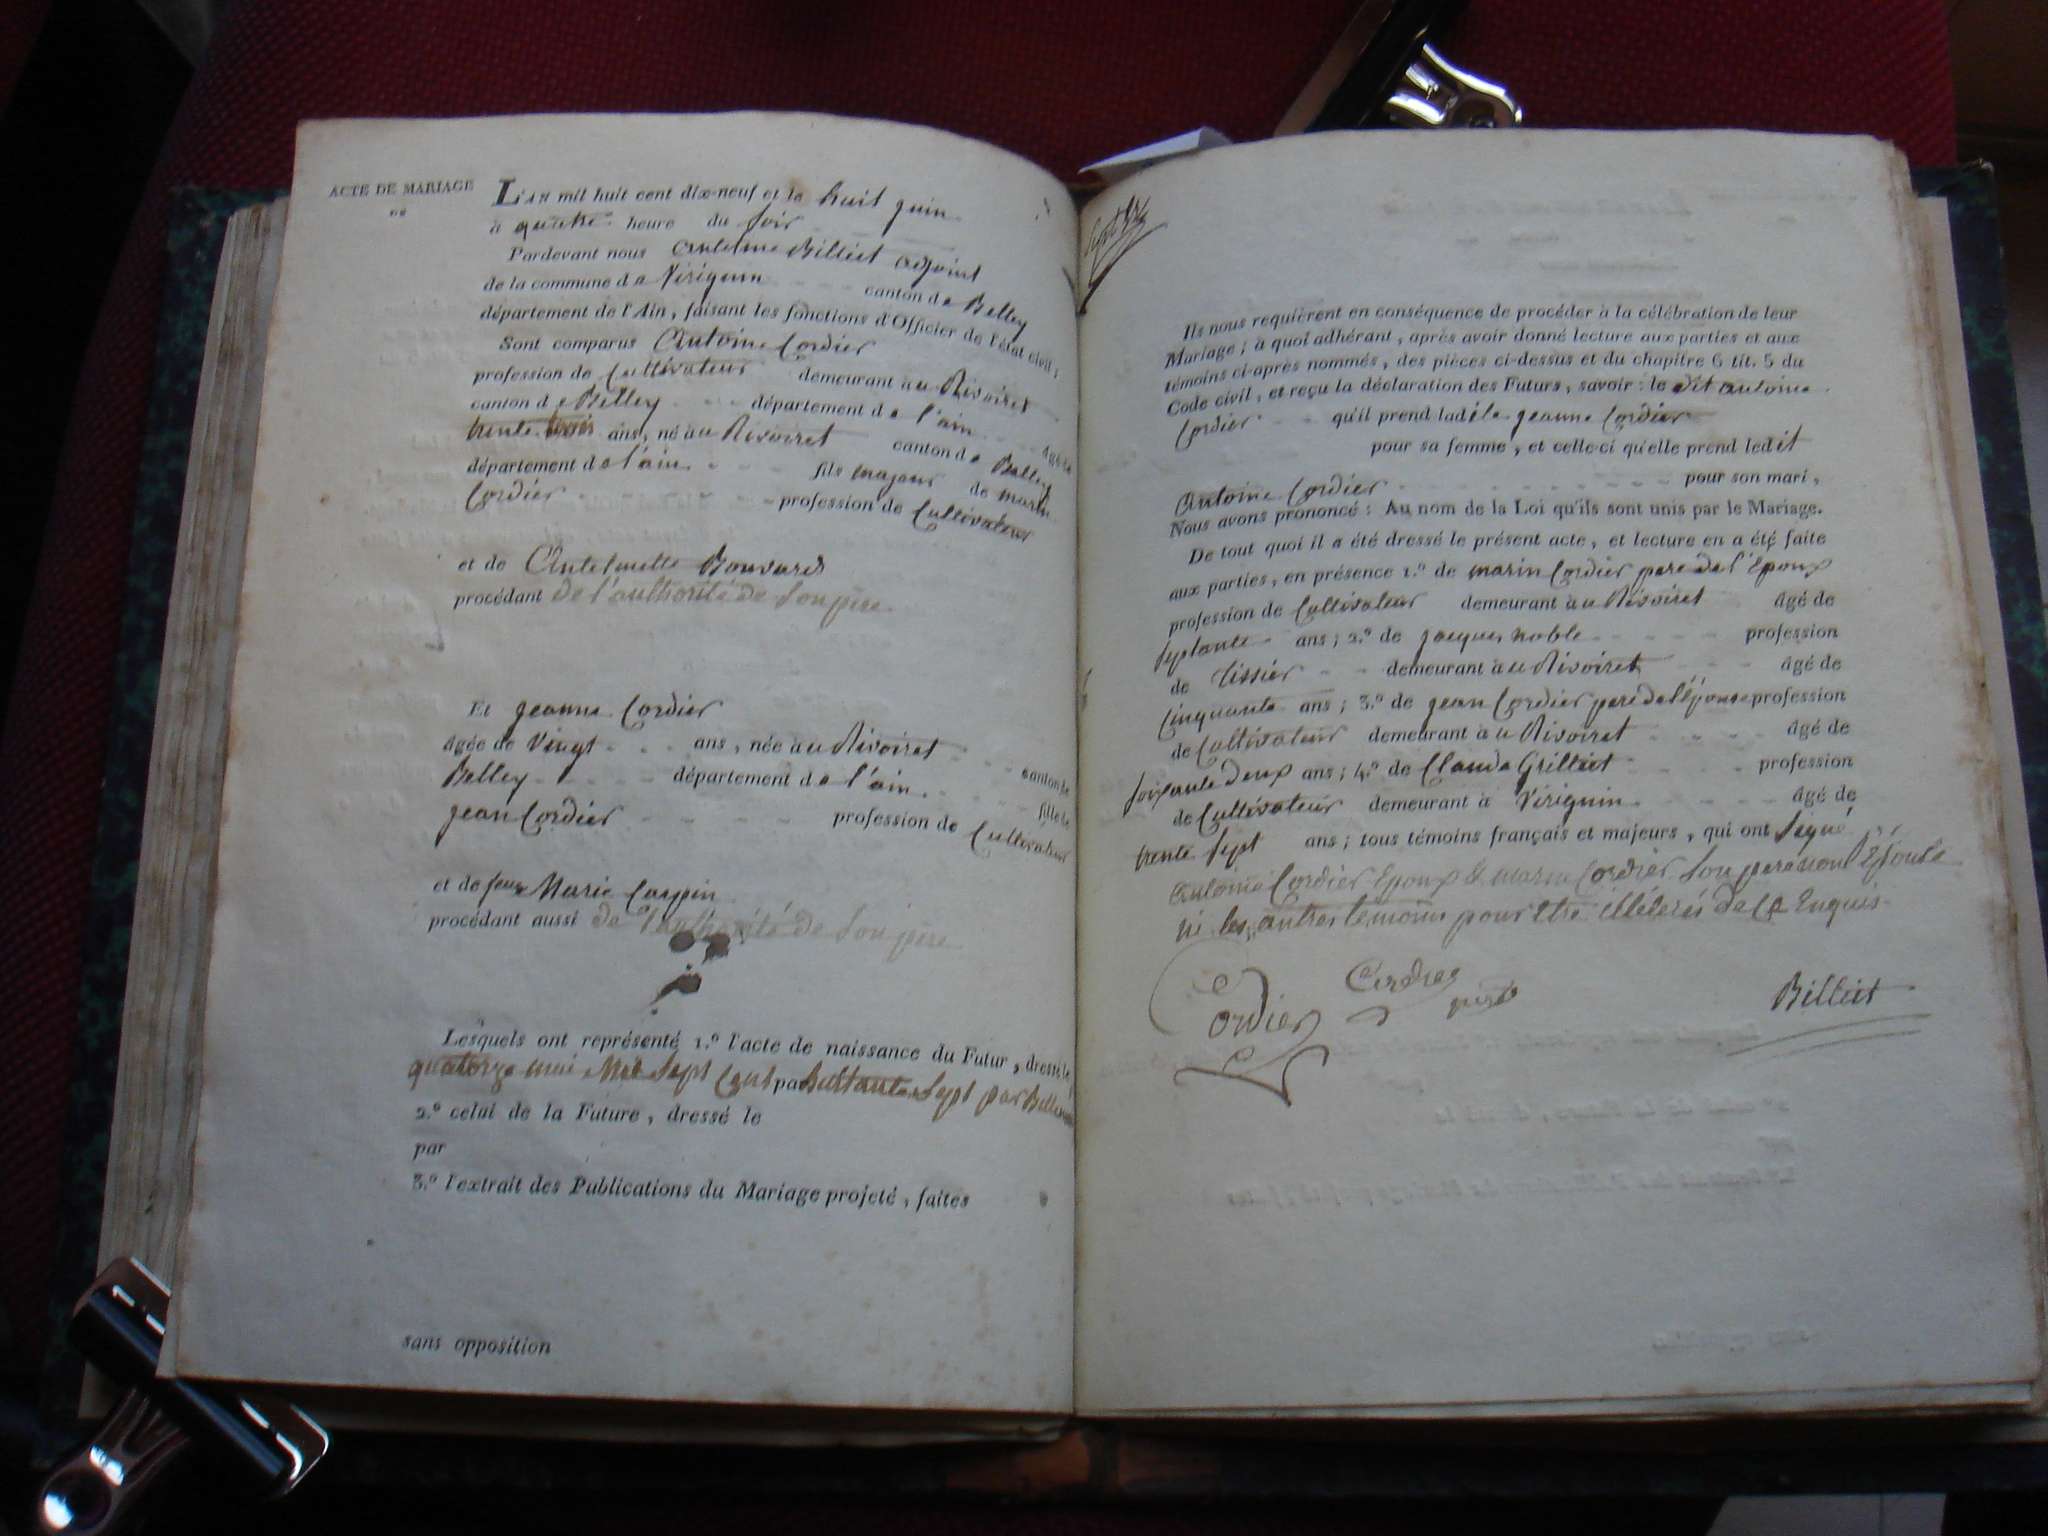 ACTE DE MARIAGE
DE
L'AN mil huit cent dix-neuf et le huit juin
à quatre heure du soir
Pardevant nous Anthelme Billiet adjoint
de la commune de Virignin canton de Belley
département de l'Ain, faisant les fonctions d'Officier de l'état civil;
Sont comparus Antoine Cordier
profession de Cultivateur demeurant à au Rivoiret
canton de Belley département de l'ain âgé de
trente trois ans, né à au Rivoiret canton de Belley
département de l'ain fils majeur de marin
Cordier profession de Cultivateur
et de Anthelmette Bouvard
procédant de l'authorité de Son père
Et jeanne Cordier
âgée de Vingt ans, née à au Rivoiret canton de
Belley département de l'ain fille de
jean Cordier profession de Cultivateur
et de feue Marie Carpin
procédant aussi de l'authorité de Son père
Lesquels ont représenté 1.º l'acte de naissance du Futur, dressé le
quatorze mai Mil Sept Cent par huitante Sept par
2.º celui de la Future, dressé le
par
3.º l'extrait des Publications du Mariage projeté, faites
sans opposition
Ils nous requièrent en conséquence de procéder à la célébration de leur
Mariage; à quoi adhérant, après avoir donné lecture aux parties et aux
témoins ci-après nommés, des pièces ci-dessus et du chapitre 6 tit. 5 du
Code civil, et reçu la déclaration des Futurs, savoir: le dit antoine
Cordier qu'il prend ladite jeanne Cordier
pour sa femme, et celle-ci qu'elle prend ledit
Antoine Cordier pour son mari,
Nous avons prononcé: Au nom de la Loi qu'ils sont unis par le Mariage.
De tout quoi il a été dressé le présent acte, et lecture en a été faite
aux parties, en présence 1.º de marin Cordier pere de l'Epoux
profession de Cultivateur demeurant à au Rivoiret âgé de
Septante ans; 2.º de jacques noble profession
de tissier demeurant à au Rivoiret âgé de
Cinquante ans; 3.º de jean Cordier pere de l'épouse profession
de Cultivateur demeurant à au Rivoiret âgé de
Soixante Deux ans; 4.º de Claude Grilliet profession
de Cultivateur demeurant à Virignin âgé de
trente Sept ans; tous témoins français et majeurs, qui ont Signé
antoine Cordier Epoux & marin Cordier Son pere non l'Epouse
ni les autres témoins pour être illéterés de ce Enquis
Cordier
Cordier
père
Billiet